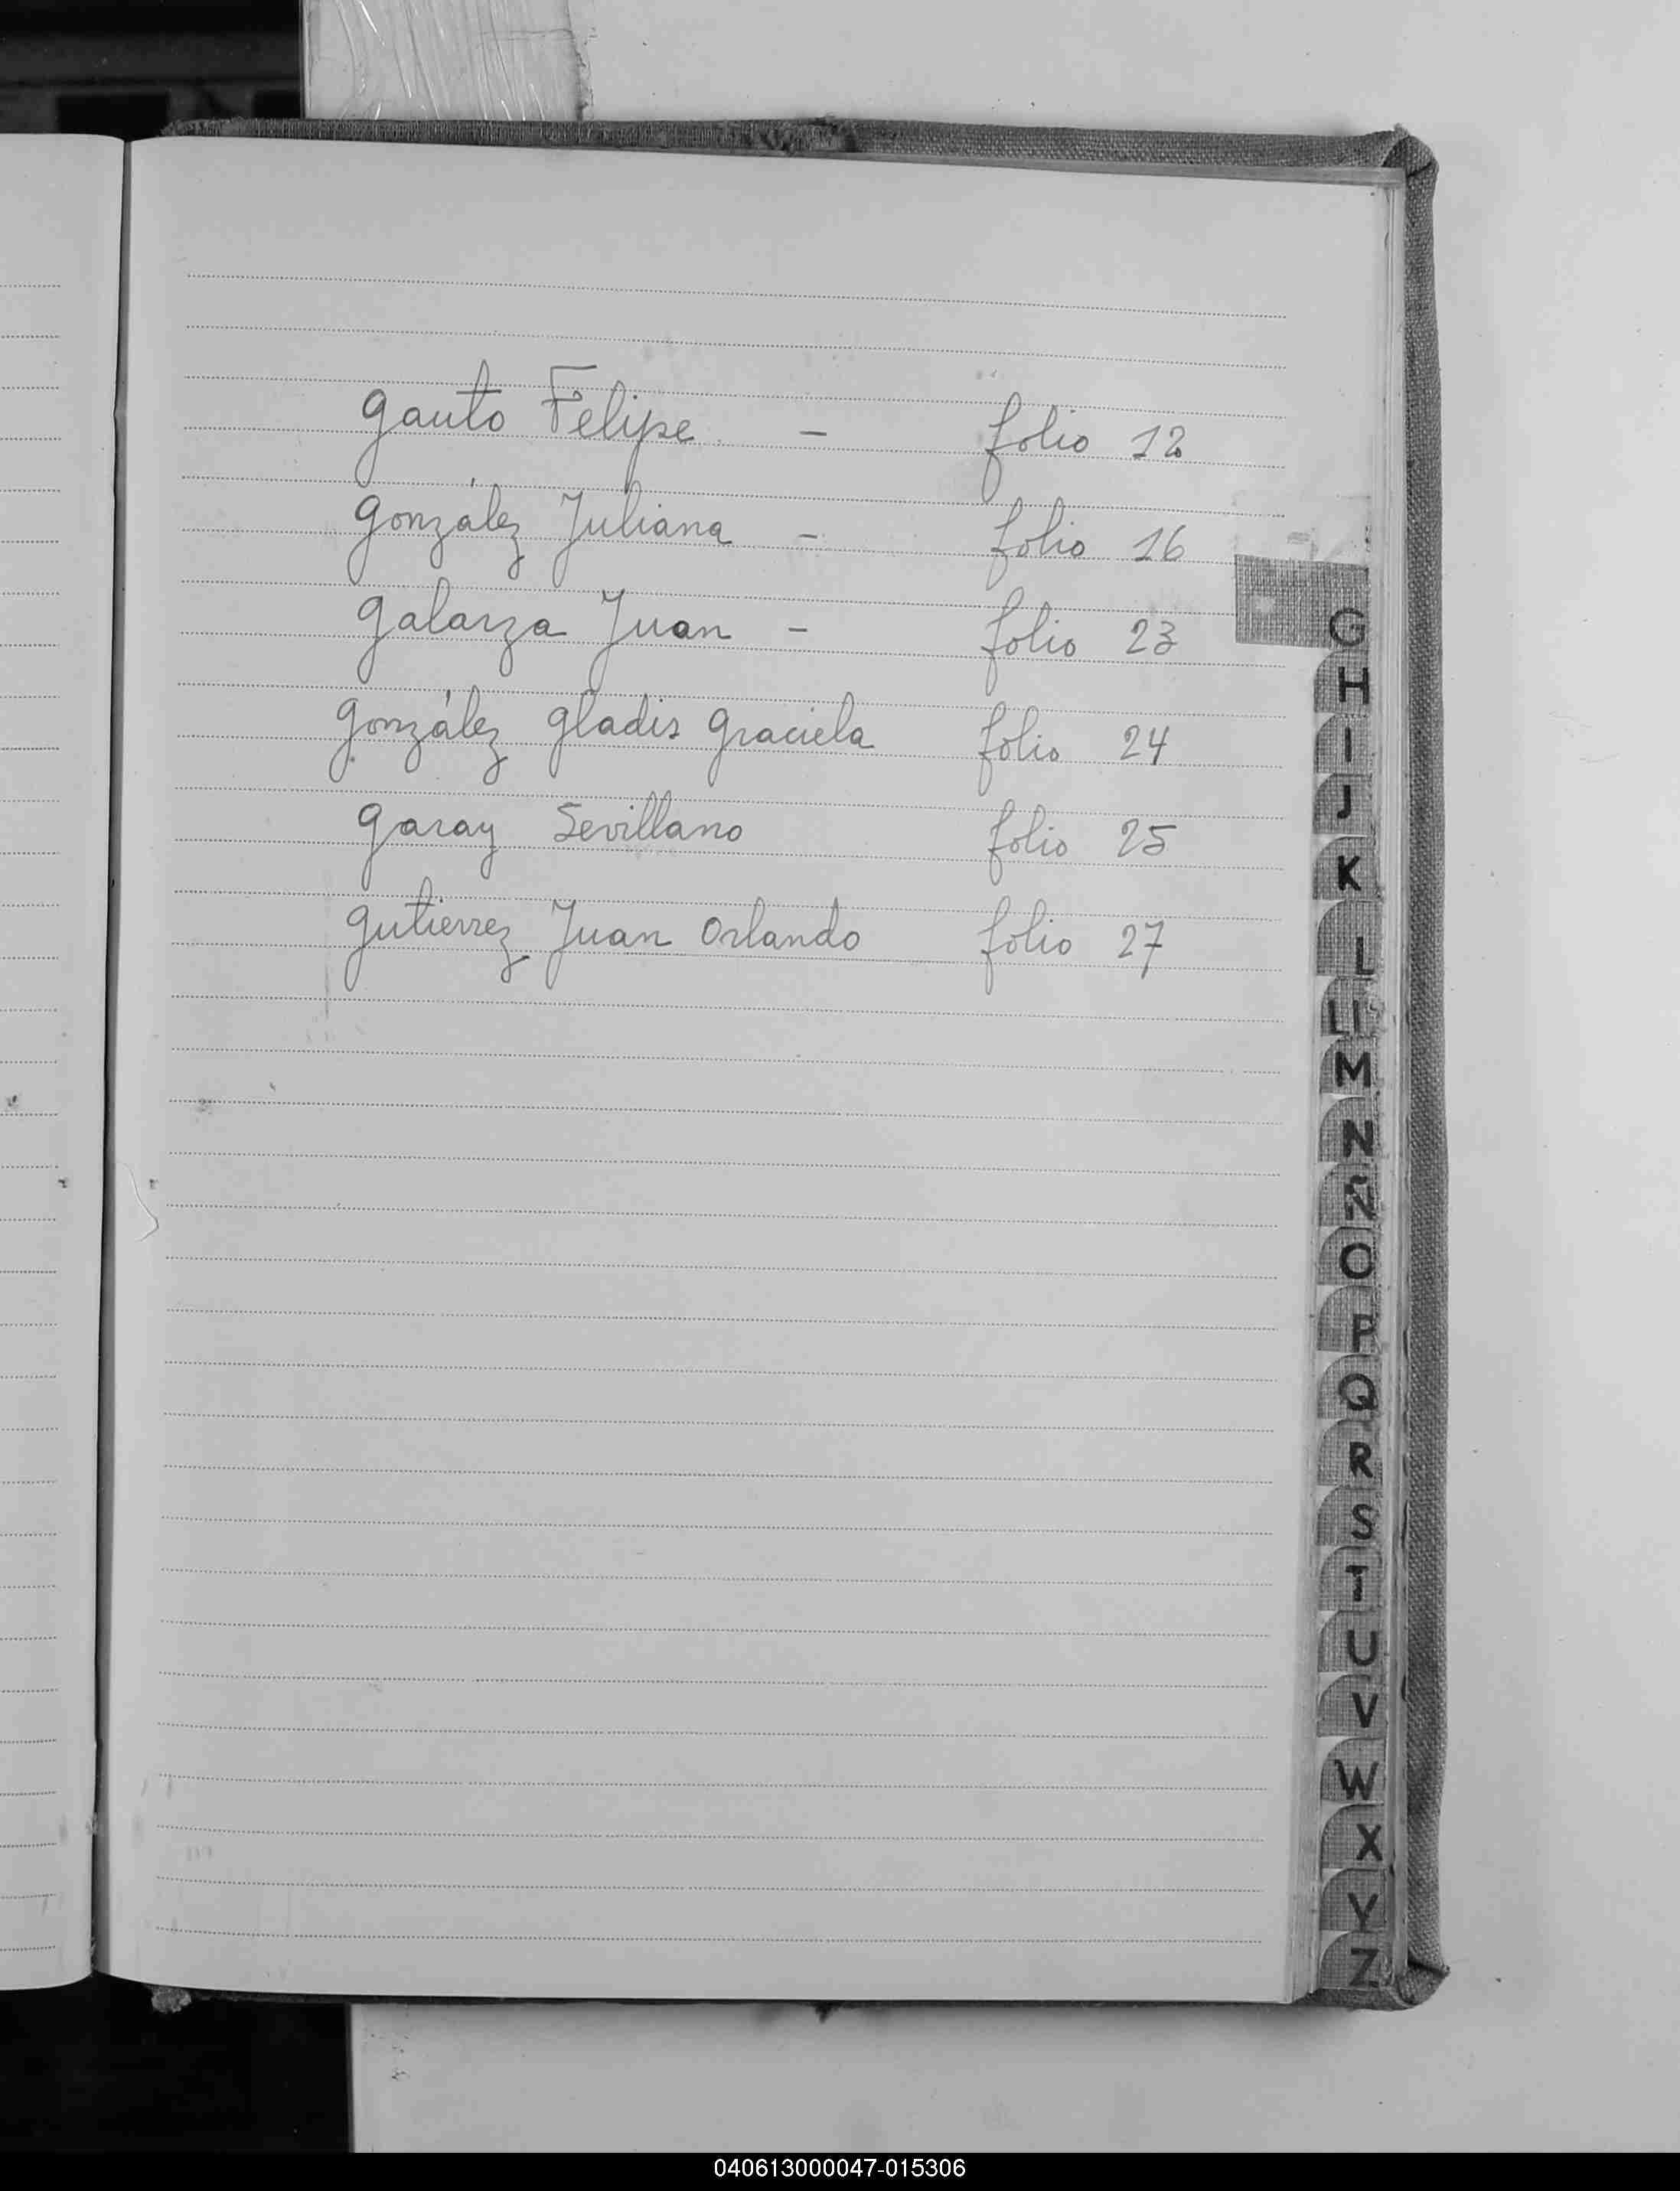 Gauto Felipe - folio 12
González Juliana - folio 16
Galarza Juan - folio 23
González Gladis Graciela folio 24
Garay Sevillano folio 25
Gutierrez Juan Orlando folio 27
G
H
I
J
K
L
Ll
M
N
Ñ
O
P
Q
R
S
T
U
V
W
X
Y
Z
040613000047-015306